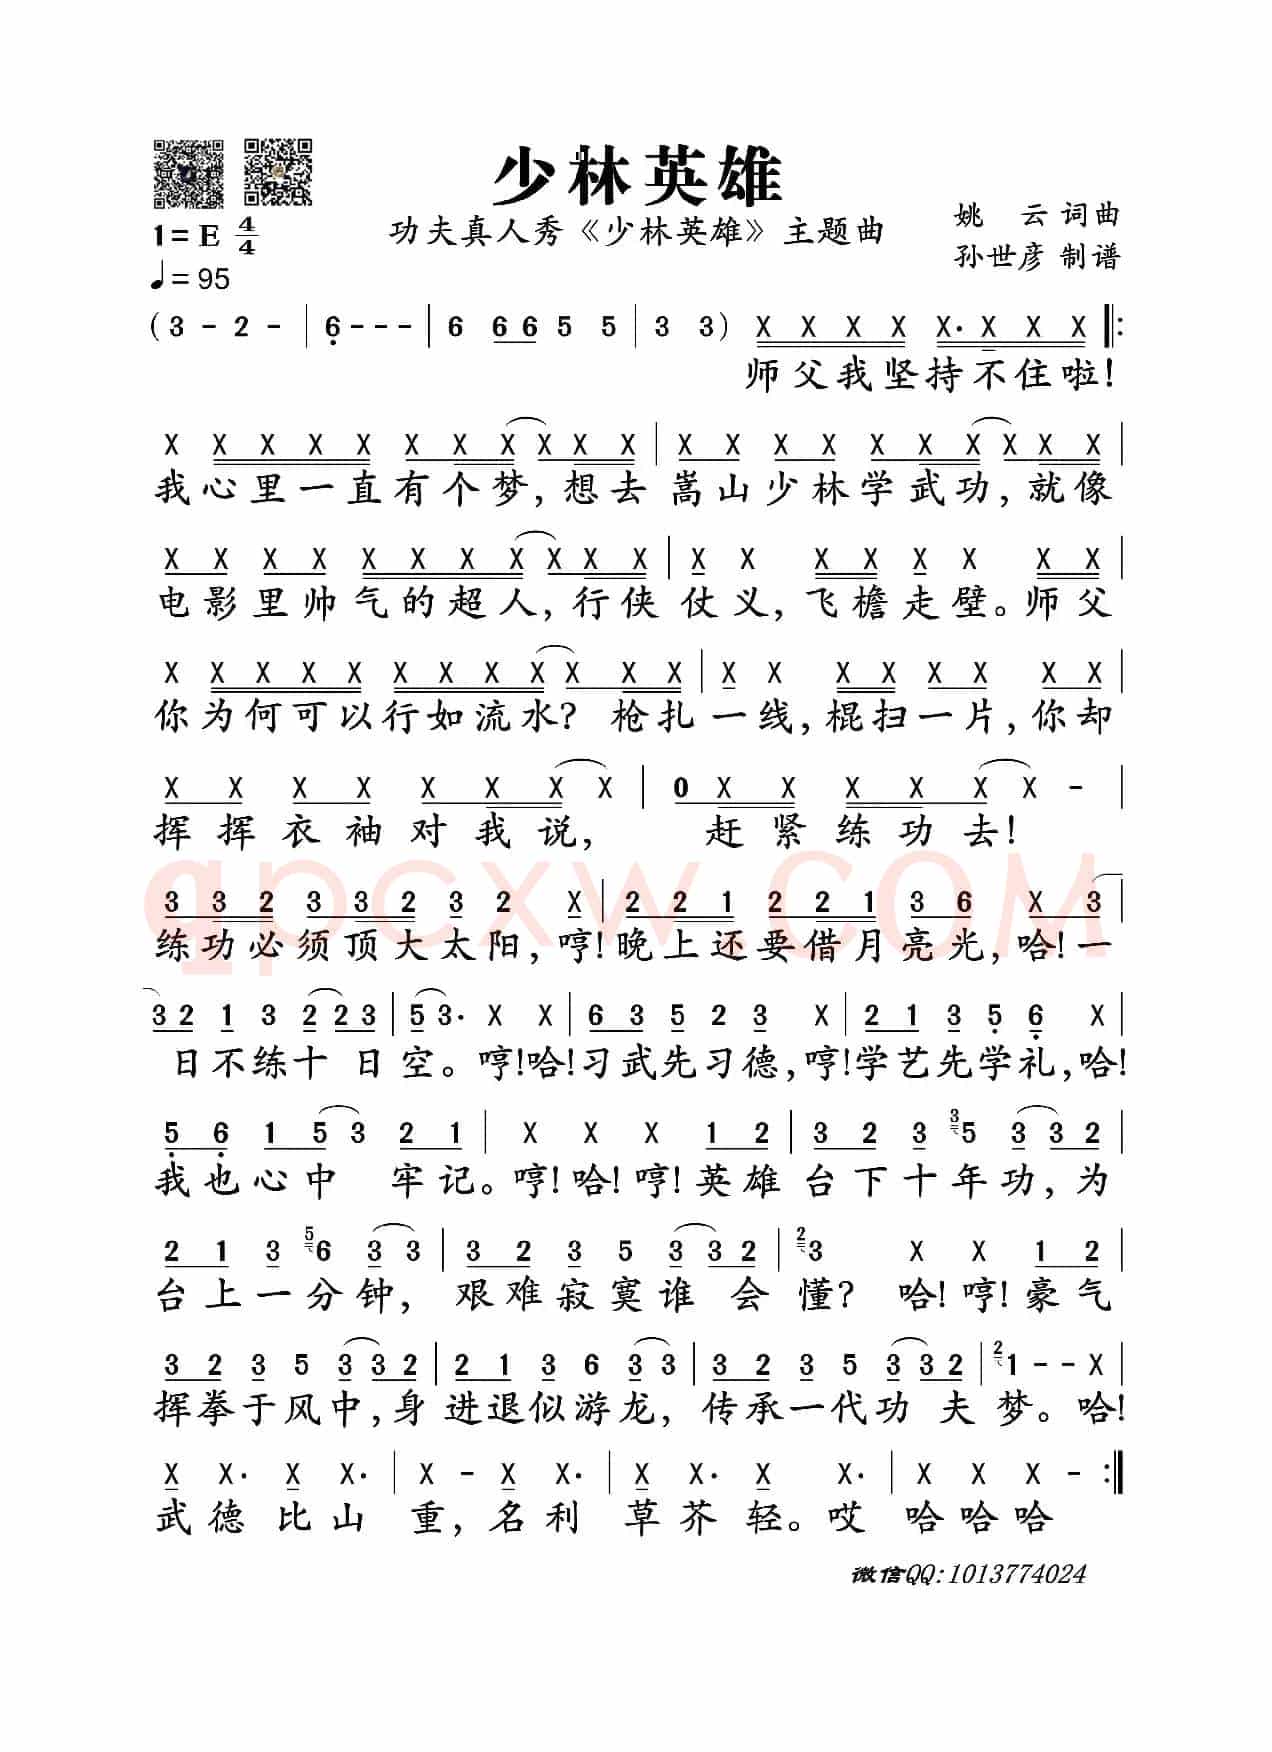 少林英雄
功夫真人秀《少林英雄》主题曲
姚 云 词曲
孙世彦 制谱
1=E 4/4
♩=95
(3 - 2 - | 6 - - - | 6 6 6 5 5 | 3 3) X X X X X· X X X ‖:
师父我坚持不住啦!
X X X X X X X X X X X | X X X X X X X X X X
我心里一直有个梦,想去嵩山少林学武功,就像
X X X X X X X X X X X | X X X X X X X X |
电影里帅气的超人,行侠仗义,飞檐走壁。师父
X X X X X X X X X X X X | X X X X X X X X |
你为何可以行如流水?枪扎一线,棍扫一片,你却
X X X X X X X X | 0 X X X X X X - |
挥挥衣袖对我说, 赶紧练功去!
3 3 2 3 3 2 3 2 X | 2 2 1 2 2 1 3 6 X 3 |
练功必须顶大太阳,哼!晚上还要借月亮光,哈!一
3 2 1 3 2 2 3 | 5 3· X X | 6 3 5 2 3 X | 2 1 3 5 6 X |
日不练十日空。哼!哈!习武先习德,哼!学艺先学礼,哈!
5 6 1 5 3 2 1 | X X X 1 2 | 3 2 3 3 5 3 3 2 |
我也心中 牢记。哼!哈!哼!英雄台下十年功,为
2 1 3 5 6 3 3 | 3 2 3 5 3 3 2 | 2 3 X X 1 2 |
台上一分钟, 艰难寂寞谁会懂? 哈!哼!豪气
3 2 3 5 3 3 2 | 2 1 3 6 3 3 | 3 2 3 5 3 3 2 | 2 1 - - X |
挥拳于风中,身进退似游龙, 传承一代功夫梦。哈!
X X· X X· | X - X X· | X X· X X· | X X X - :‖
武德比山重,名利草芥轻。哎 哈哈哈
微信QQ:1013774024
qpcxw.COM